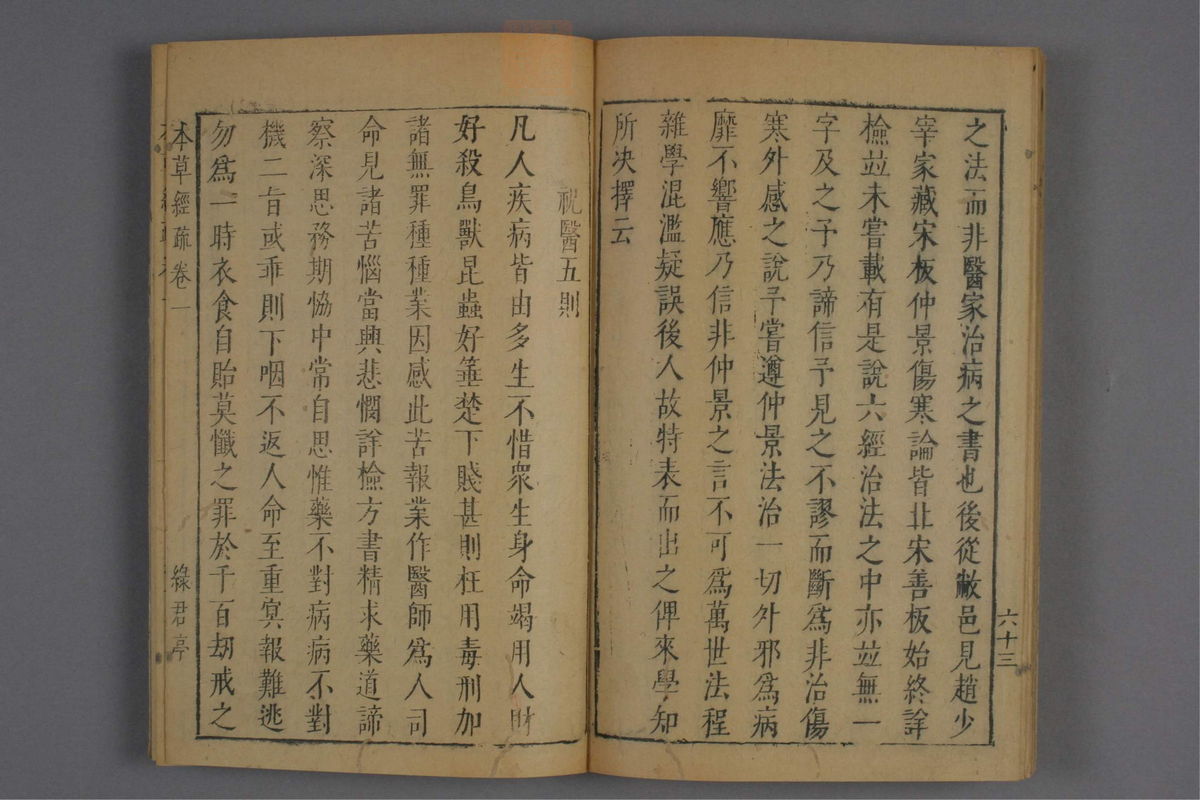 之法而非醫家治病之書也後從敝邑見趙少
宰家藏宋板仲景傷寒論皆北宋善板始終詮
檢並未嘗載有是說六經治法之中亦並無一
字及之予乃諦信予見之不謬而斷爲非治傷
寒外感之說予嘗遵仲景法治一切外邪爲病
靡不響應乃信非仲景之言不可爲萬世法程
雜學混濫疑誤後人故特表而出之俾來學知
所決擇云
六十三
祝醫五則
凡人疾病皆由多生不惜衆生身命竭用人財
好殺鳥獸昆蟲好箠楚下賤甚則枉用毒刑加
諸無罪種種業因感此苦報業作醫師爲人司
命見諸苦惱當興悲憫詳檢方書精求藥道諦
察深思務期恊中常自思惟藥不對病病不對
機二旨或乖則下咽不返人命至重冥報難逃
勿爲一時衣食自貽莫懺之罪於千百劫戒之
本草經疏卷一
綠君亭